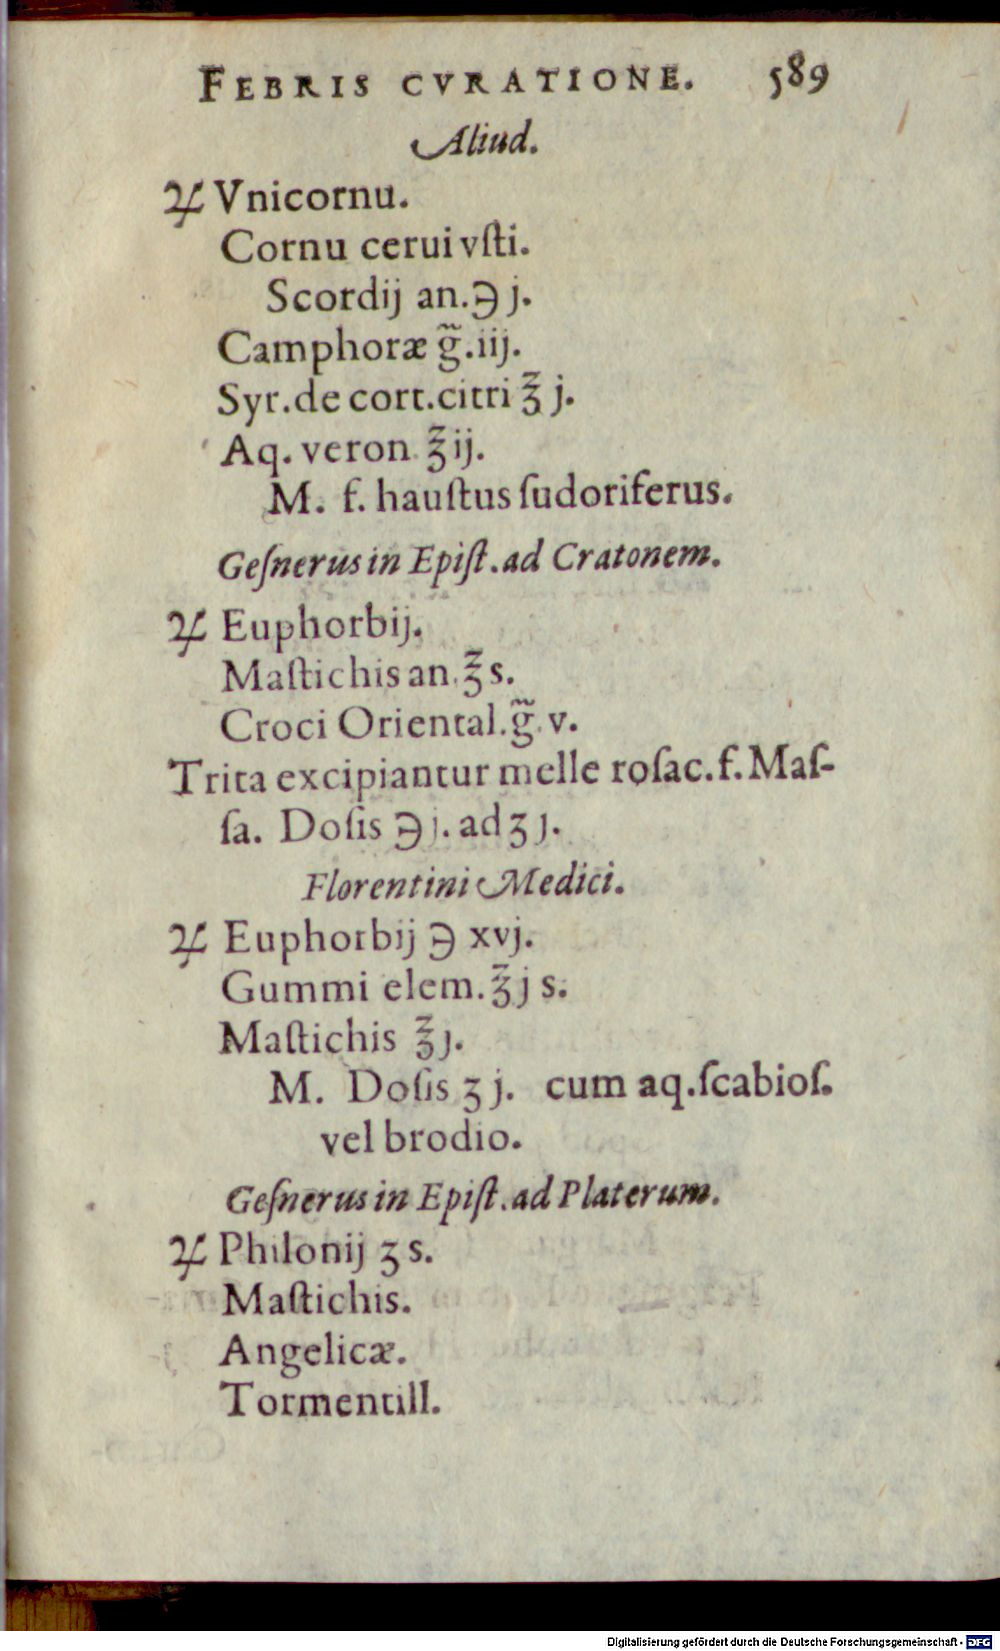 FEBRIS CVRATIONE. 589
Aliud.
♃ Vnicornu.
Cornu cerui vſti.
Scordij an.℈ j.
Camphoræ g̃.iij.
Syr.de cort.citri ℥ j.
Aq. veron ℥ ij.
M. f. hauſtus ſudoriferus.
Geſnerus in Epiſt.ad Cratonem.
♃ Euphorbij.
Maſtichis an.℥ s.
Croci Oriental.g̃.v.
Trita excipiantur melle roſac.f.Maſ-
ſa. Doſis ℈ j. ad ʒ j.
Florentini Medici.
♃ Euphorbij ℈ xvj.
Gummi elem.℥ j s.
Maſtichis ℥ j.
M. Doſis ʒ j. cum aq.ſcabioſ.
vel brodio.
Geſnerus in Epiſt.ad Platerum.
♃ Philonij ʒ s.
Maſtichis.
Angelicæ.
Tormentill.
Digitalisierung gefördert durch die Deutsche Forschungsgemeinschaft - DFG